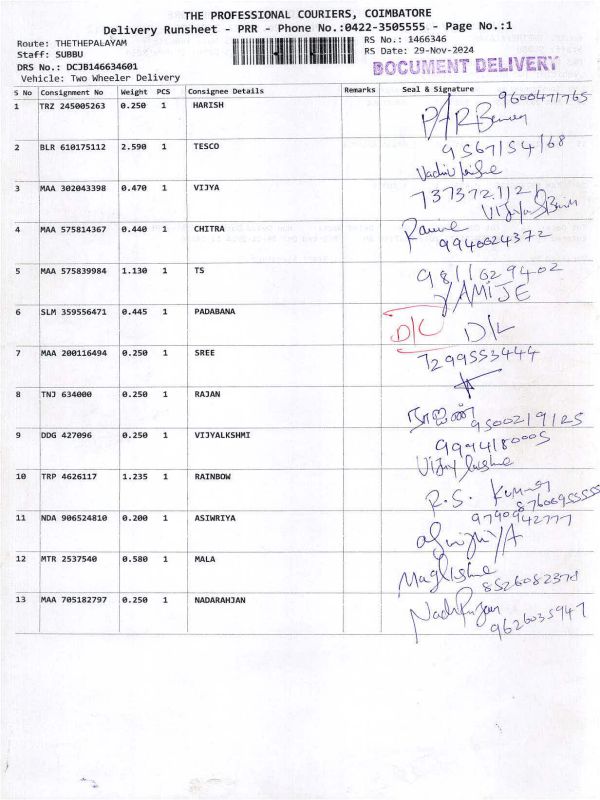 THE PROFESSIONAL COURIERS, COIMBATORE
Delivery Runsheet - PRR - Phone No.:0422-3505555 - Page No.:1
Route: THETHEPALAYAM RS No.: 1466346
Staff: SUBBU RS Date: 29-Nov-2024
DRS No.: DCJB146634601 DOCUMENT DELIVERY
Vehicle: Two Wheeler Delivery
S No Consignment No Weight PCS Consignee Details Remarks Seal & Signature
1 TRZ 245005263 0.250 1 HARISH 9600471765
2 BLR 610175112 2.590 1 TESCO 9567154168
3 MAA 302043398 0.470 1 VIJYA 7373721121
4 MAA 575814367 0.440 1 CHITRA 9940024372
5 MAA 575839984 1.130 1 TS 9811029402
6 SLM 359556471 0.445 1 PADABANA D/C D/L
7 MAA 200116494 0.250 1 SREE 7299553444
8 TNJ 634000 0.250 1 RAJAN 9500219125
9 DDG 427096 0.250 1 VIJYALKSHMI 9994180005
10 TRP 4626117 1.235 1 RAINBOW R.S. Kumar 8760695555
11 NDA 906524810 0.200 1 ASIWRIYA 9790942777
12 MTR 2537540 0.580 1 MALA 8526082378
13 MAA 705182797 0.250 1 NADARAHJAN 9626035947